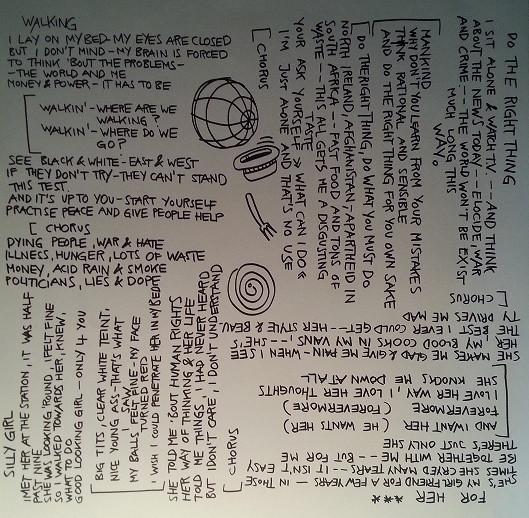 WALKING
I LAY ON MY BED- MY EYES ARE CLOSED
BUT I DON'T MIND - MY BRAIN IS FORCED
TO THINK 'BOUT THE PROBLEMS-
-THE WORLD AND ME
MONEY & POWER - IT HAS TO BE
WALKIN'- WHERE ARE WE
WALKING?
WALKIN'- WHERE DO WE
GO?
SEE BLACK & WHITE - EAST & WEST
IF THEY DON'T TRY-THEY CAN'T STAND
THIS TEST.
AND IT'S UP TO YOU - START YOURSELF
PRACTISE PEACE AND GIVE PEOPLE HELP
[ CHORUS
DYING PEOPLE, WAR & HATE
ILLNESS, HUNGER, LOTS OF WASTE
MONEY, ACID RAIN & SMOKE
POLITICIANS, LIES & DOPE
DO THE RIGHT THING
I SIT ALONE & WATCH TV -- AND THINK
ABOUT THE NEWS TODAY -- EUOCIDE, WAR
AND CRIME -- THE WORLD WON'T BE EXIST
MUCH LONG THIS
WAY.
MANKIND
WHY DON'T YOU LEARN FROM YOUR MISTAKES
THINK RATIONAL AND SENSIBLE
AND DO THE RIGHT THING FOR YOU OWN SAKE
DO THE RIGHT THING, DO WHAT YOU MUST DO
NORTH IRELAND, AFGHANISTAN, APARTHEID IN
SOUTH AFRIKA -- FAST FOOD AND TONS OF
WASTE -- THIS ALL GETS ME A DISGUSTING
TASTE
YOUR ASK YOURSELF » WHAT CAN I DO «
I'M JUST ALONE AND THAT'S NO USE
[ CHORUS
FOR HER ***
SHE'S MY GIRLFRIEND FOR A FEW YEARS - IN THOSE
TIMES SHE CRYED MANY TEARS -- IT ISN'T EASY
BE TOGETHER WITH ME -- BUT FOR ME
THERE'S JUST ONLY SHE
AND I WANT HER (SHE WANTS HER)
FOREVERMORE (FOREVERMORE)
I LOVE HER WAY, I LOVE HER THOUGHTS
SHE KNOCKS ME DOWN AT ALL
SHE MAKES ME GLAD & GIVE ME PAIN - WHEN I SEE
HER, MY BLOOD COOKS IN MY VAINS, --SHE'S
THE BEST I EVER COULD GET -- HER STYLE & BEAU
TY DRIVES ME MAD
[ CHORUS
SILLY GIRL
I MET HER AT THE STATION, IT WAS HALF
PAST NINE
SHE WAS LOOKING ROUND, I FELT FINE
SO I WALKED TOWARDS HER, I KNEW,
WHAT TO DO
GOOD LOOKING GIRL - ONLY 4 YOU
BIG TITS, CLEAR WHITE TEINT.
NICE YOUNG ASS - THAT'S WHAT
I SAW,
MY BALLS, FELT FINE - MY FACE
TURNED RED
I WISH I COULD PENETRATE HER IN MY BED
SHE TOLD ME 'BOUT HUMAN RIGHTS
HER WAY OF THINKING & HER LIFE
TOLD ME THINGS, I HAD NEVER HEARD
BUT I DON'T CARE, I DON'T UNDERSTAND
[ CHORUS